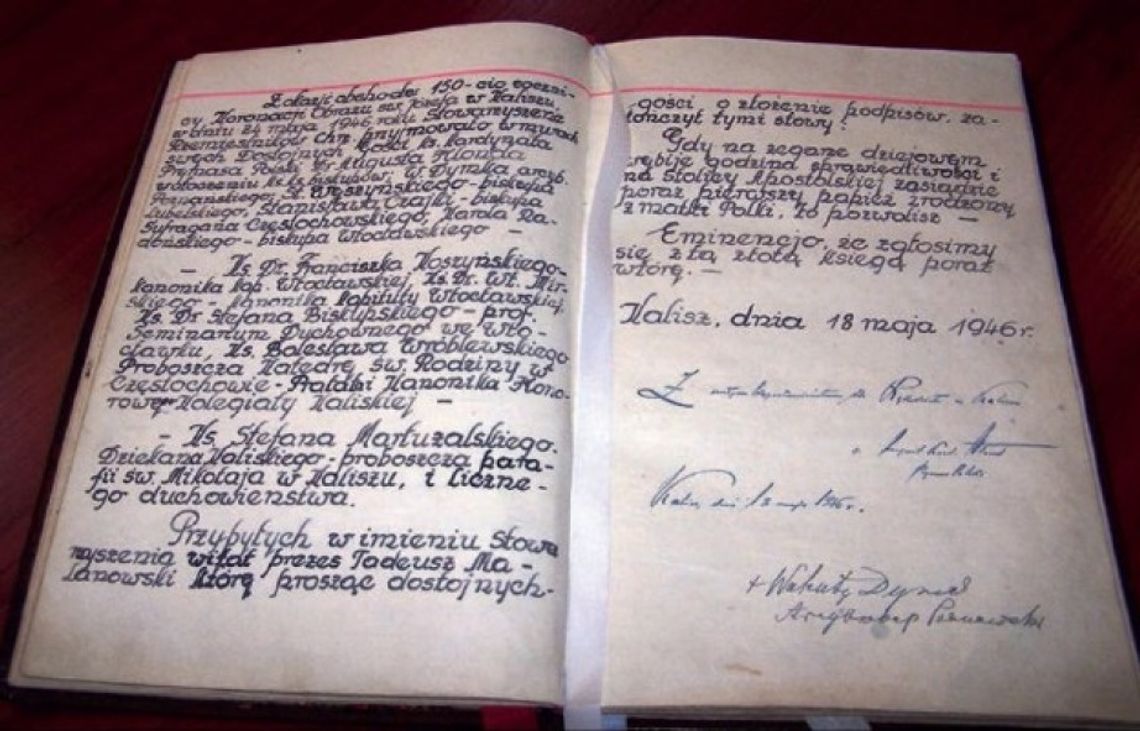 Z okazji obchodu 150-cio roczni-
cy Koronacji Obrazu św. Józefa w Kaliszu
w dniu 24 maja 1946 roku Stowarzyszenie
Rzemieślników Chrz. przyjmowało w murach
swych Dostojnych Gości ks. Kardynała
Prymasa Polski Dr. Augusta Hlonda
w otoczeniu ks. ks. biskupów; W. Dymka arcyb.
Poznańskiego, St. Wyszyńskiego - biskupa
Lubelskiego, Stanisława Czajki - biskupa
Sufragana Częstochowskiego, Karola Ra-
dońskiego - biskupa Włocławskiego —
— Ks. Dr. Franciszka Koszyńskiego-
kanonika kap. Włocławskiej, Ks. Dr. Wł. Mir-
skiego - kanonika Kapituły Włocławskiej,
Ks. Dr Stefana Biskupskiego - prof.
Seminarium Duchownego we Wło-
cławku, Ks. Bolesława Wróblewskiego
Proboszcza Katedrę św. Rodziny w
Częstochowie - Prałatki Kanonika Hono-
rowę Kolegiaty Kaliskiej —
— Ks. Stefana Martuzalskiego.
Dziekana Kaliskiego - proboszcza para-
fii św. Mikołaja w Kaliszu, i liczne-
go duchowieństwa.
Przybyłych w imieniu Stowa
rzyszenia witał prezes Tadeusz Ma-
lanowski którę prosząc dostojnych-
gości o złożenie podpisów, za-
kończył tymi słowy:
Gdy na zegarze dziejowym
wybije godzina sprawiedliwości i
na Stolicy Apostolskiej zasiądzie
poraz pierwszy papież zrodzony
z matki Polki, to pozwolisz —
Eminencjo, że zgłosimy
się z tą złotą księgą poraz
wtórę. —
Kalisz, dnia 18 maja 1946 r.
Z
Kalisz, dnia 18 maja 1946 r.
+ Walenty Dymek
Arcybiskup Poznański